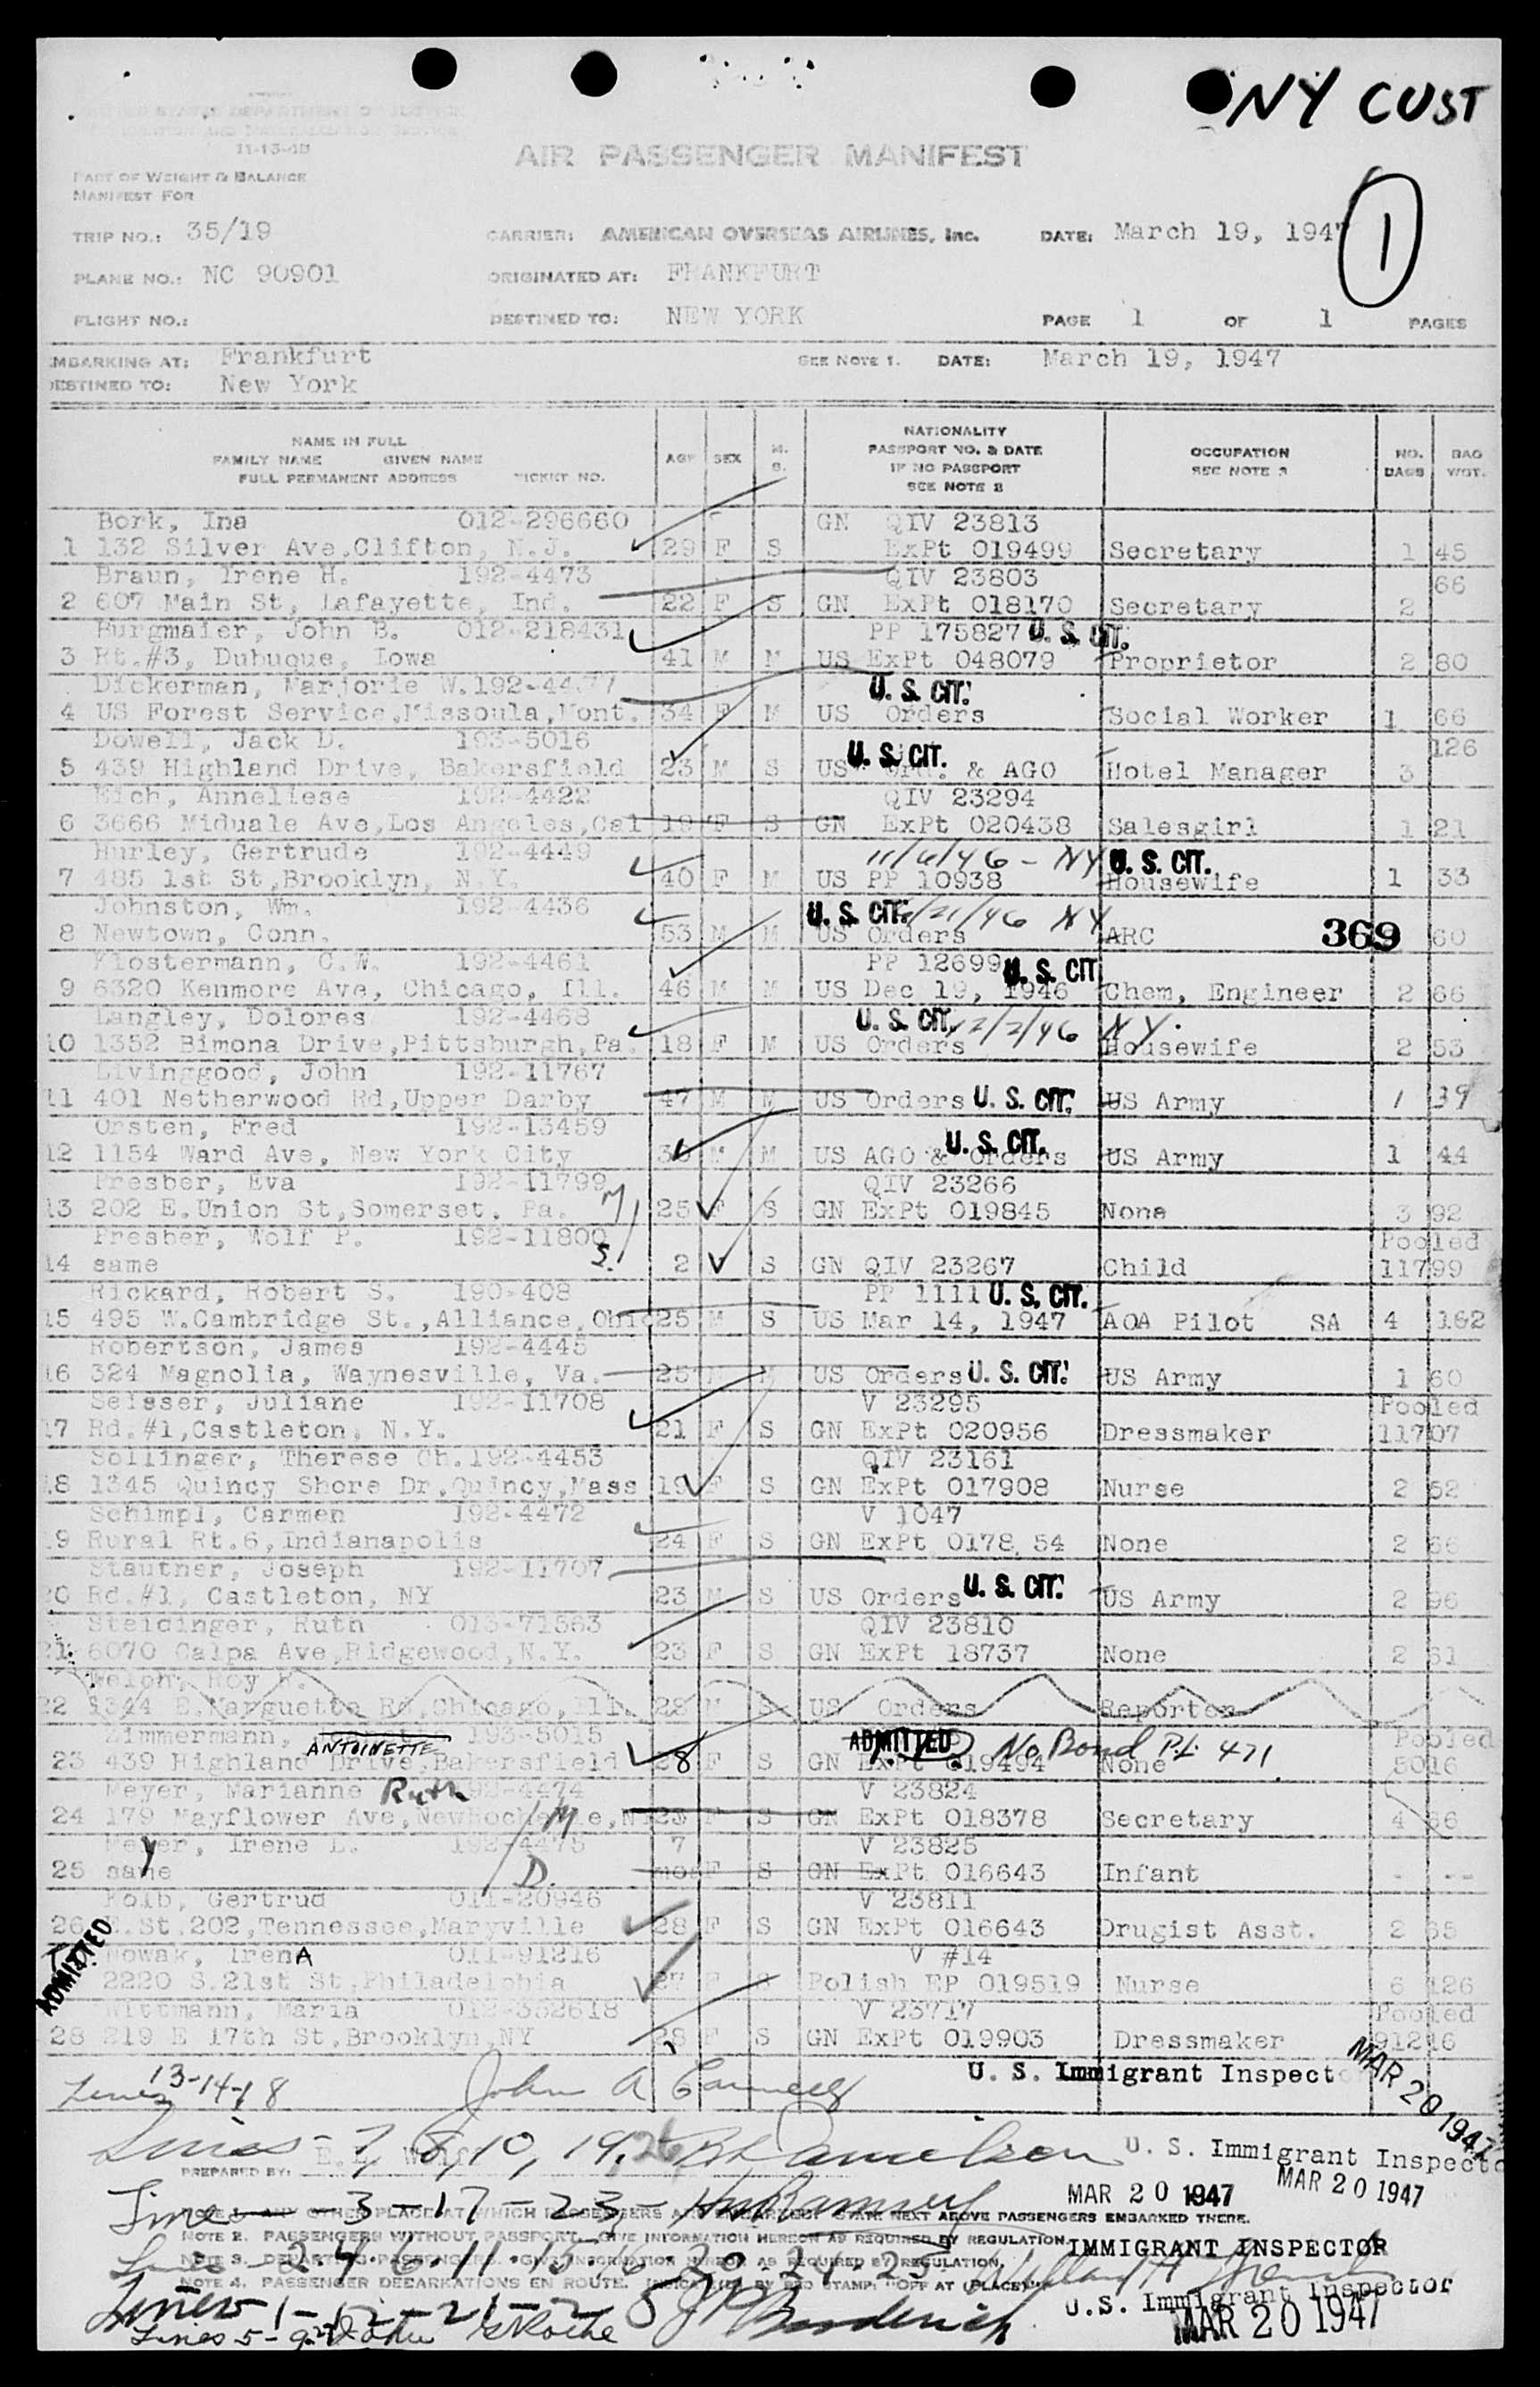 NY CUST
11-13-45
AIR PASSENGER MANIFEST
PART OF WEIGHT & BALANCE
MANIFEST FOR
1
TRIP NO.: 35/19 CARRIER: AMERICAN OVERSEAS AIRLINES, Inc. DATE: March 19, 1947
PLANE NO.: NC 90901 ORIGINATED AT: FRANKFURT
FLIGHT NO.: DESTINED TO: NEW YORK PAGE 1 OF 1 PAGES
EMBARKING AT: Frankfurt SEE NOTE 1. DATE: March 19, 1947
DESTINED TO: New York
NAME IN FULL
FAMILY NAME GIVEN NAME
FULL PERMANENT ADDRESS TICKET NO.
AGE SEX M. S.
NATIONALITY
PASSPORT NO. & DATE
IF NO PASSPORT
SEE NOTE 2
OCCUPATION
SEE NOTE 3
NO. BAGS BAG WGT.
Bork, Ina 012-296660 GN QIV 23813
1 132 Silver Ave.Clifton, N.J. 29 F S ExPt 019499 Secretary 1 45
Braun, Irene H. 192-4473 QIV 23803 66
2 607 Main St, Lafayette, Ind. 22 F S GN ExPt 018170 Secretary 2
Burgmaier, John B. 012-218431 PP 175827 U. S. CIT.
3 Rt.#3, Dubuque, Iowa 41 M M US ExPt 048079 Proprietor 2 80
Dickerman, Marjorie W.192-4477 U. S. CIT.
4 US Forest Service,Missoula,Mont. 34 F M US Orders Social Worker 1 66
Dowell, Jack D. 193-5016 U. S. CIT. 126
5 439 Highland Drive, Bakersfield 23 M S US Ord. & AGO Hotel Manager 3
Eich, Anneliese 192-4422 QIV 23294
6 3666 Miduale Ave,Los Angeles,Cal 19 F S GN ExPt 020438 Salesgirl 1 21
Hurley, Gertrude 192-4449 11/6/46 - NY U. S. CIT.
7 485 1st St,Brooklyn, N.Y. 40 F M US PP 10938 Housewife 1 33
Johnston, Wm. 192-4436 U. S. CIT. /21/46 NY
8 Newtown, Conn. 53 M M US Orders ARC 369 60
Klostermann, C.W. 192-4461 PP 12699 U. S. CIT
9 6320 Kenmore Ave, Chicago, Ill. 46 M M US Dec 19, 1946 Chem, Engineer 2 66
Langley, Dolores 192-4468 U. S. CIT. 12/2/46 NY.
10 1352 Bimona Drive,Pittsburgh,Pa. 18 F M US Orders Housewife 2 53
Livinggood, John 192-11767
11 401 Netherwood Rd,Upper Darby 47 M M US Orders U. S. CIT. US Army 1 39
Orsten, Fred 192-13459 U. S. CIT.
12 1154 Ward Ave, New York City M M US AGO & Orders US Army 1 44
Presber, Eva 192-11799 M QIV 23266
13 202 E.Union St,Somerset, Pa. 25 F S GN ExPt 019845 None 3 92
Presber, Wolf P. 192-11800 S. Pooled
14 same 2 S GN QIV 23267 Child 11799
Rickard, Robert S. 190-408 PP 1111 U. S. CIT.
15 495 W.Cambridge St.,Alliance,Ohio 25 M S US Mar 14, 1947 AOA Pilot SA 4 162
Robertson, James 192-4445
16 324 Magnolia, Waynesville, Va. 25 M US Orders U. S. CIT. US Army 1 60
Seisser, Juliane 192-11708 V 23295 Pooled
17 Rd.#1,Castleton, N.Y. 21 F S GN ExPt 020956 Dressmaker 11707
Sollinger, Therese Ch.192-4453 QIV 23161
18 1345 Quincy Shore Dr,Quincy,Mass 19 F S GN ExPt 017908 Nurse 2 52
Schimpl, Carmen 192-4472 V 1047
19 Rural Rt.6,Indianapolis 24 F S GN ExPt 0178 54 None 2 66
Stautner, Joseph 192-11707
20 Rd.#1, Castleton, NY 23 M S US Orders U. S. CIT. US Army 2 96
Steidinger, Ruth 013-71563 QIV 23810
21 6070 Calpa Ave,Ridgewood,N.Y. 23 F S GN ExPt 18737 None 2 61
Welch, Roy
22 5344 E.Marguette Rd,Chicago,Ill. 28 M S US Orders Reporter
Zimmermann, ANTOINETTE 193-5015 ADMITTED No Bond P.L. 471 Pooled
23 439 Highland Drive,Bakersfield 28 F S GN ExPt 019494 None 5016
Meyer, Marianne Ruth 192-4474 V 23824
24 179 Mayflower Ave,NewRochelle,N 23 F S GN ExPt 018378 Secretary 4 66
M
Meyer, Irene L. 192-4475 7 V 23825
25 same D. mos F S GN ExPt 016643 Infant - --
Kolb, Gertrud 011-20946 V 23811
26 E.St.202,Tennessee,Maryville 28 F S GN ExPt 016643 Drugist Asst. 2 65
ADMITTED
Nowak, IrenA 011-91216 V #14
2220 S.21st St,Philadelphia 27 F S Polish EP 019519 Nurse 6 126
Wittmann, Maria 012-352618 V 23717 Pooled
28 219 E 17th St,Brooklyn,NY 28 F S GN ExPt 019903 Dressmaker 91216
Lines 13-14-18 John A U. S. Immigrant Inspector MAR 20 1947
Lines - 7, 8, 10, 19, 26 Danielson U. S. Immigrant Inspector
PREPARED BY: MAR 20 1947
MAR 20 1947
Line - 3 - 17 - 23 - Ramsey
NOTE 1. ANY OTHER PLACE AT WHICH PASSENGERS STATE NEXT ABOVE PASSENGERS EMBARKED THERE.
NOTE 2. PASSENGERS WITHOUT PASSPORT - GIVE INFORMATION HEREON AS REQUIRED BY REGULATION.
IMMIGRANT INSPECTOR
NOTE 3. DEPARTING PASSENGERS - GIVE INFORMATION HEREON AS REQUIRED BY REGULATION.
Lines - 2 4 6 11 15 16 20 24 25
NOTE 4. PASSENGER DEBARKATIONS EN ROUTE. INDICATED BY RED STAMP: "OFF AT (PLACE)"
U.S. Immigrant Inspector
MAR 20 1947
Lines - 1 - 12 - 21 - 28 Broderick
Lines 5 - 9 - 27 John Roche